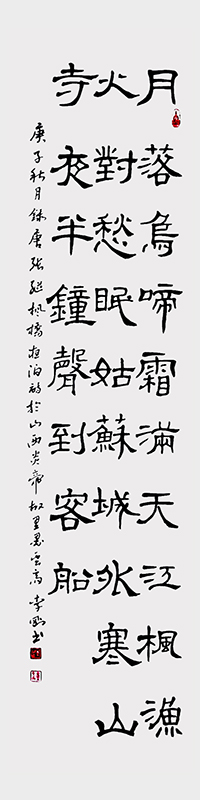 月落烏啼霜滿天江楓漁
火對愁眠姑蘇城外寒山
寺夜半鐘聲到客船
庚子秋月錄唐張繼楓橋夜泊詩於山西炎帝故里墨雲李书